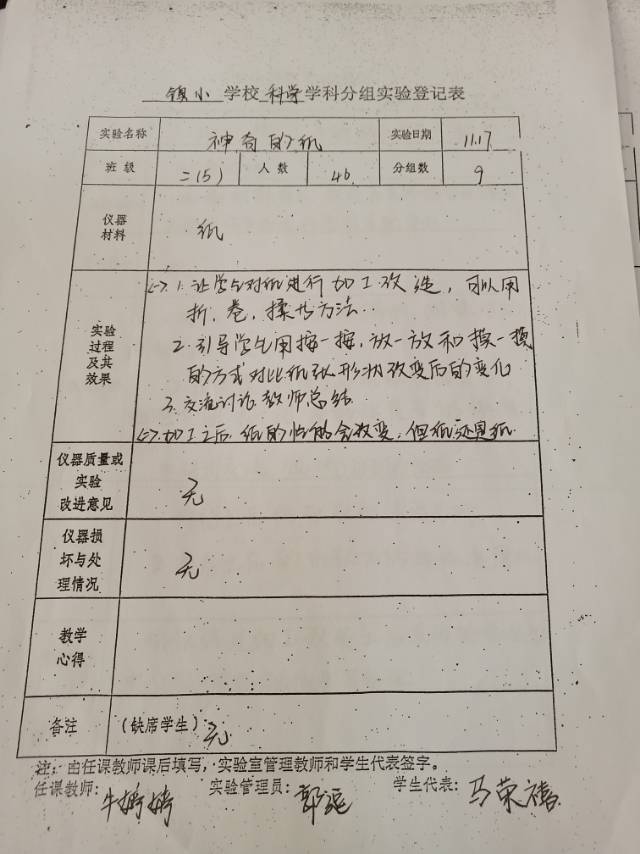 镇小 学校 科学 学科分组实验登记表
实验名称 神奇的纸 实验日期 11.17
班 级 二(5) 人 数 46 分组数 9
仪器
材料
纸
实验
过程
及其
效果
1. 让学生对纸进行加工改造，可以用
折、卷、揉等方法..
2. 引导学生用按一按，放一放和摸一摸
的方式对比纸张形状改变后的变化
3. 交流讨论 教师总结.
加工之后，纸的性能会改变，但纸还是纸.
仪器质量或
实验
改进意见
无
仪器损
坏与处
理情况
无
教学
心得
备注 (缺席学生) 无
注：由任课教师课后填写，实验室管理教师和学生代表签字。
任课教师: 牛婷婷 实验管理员: 郭 学生代表: 马荣禧